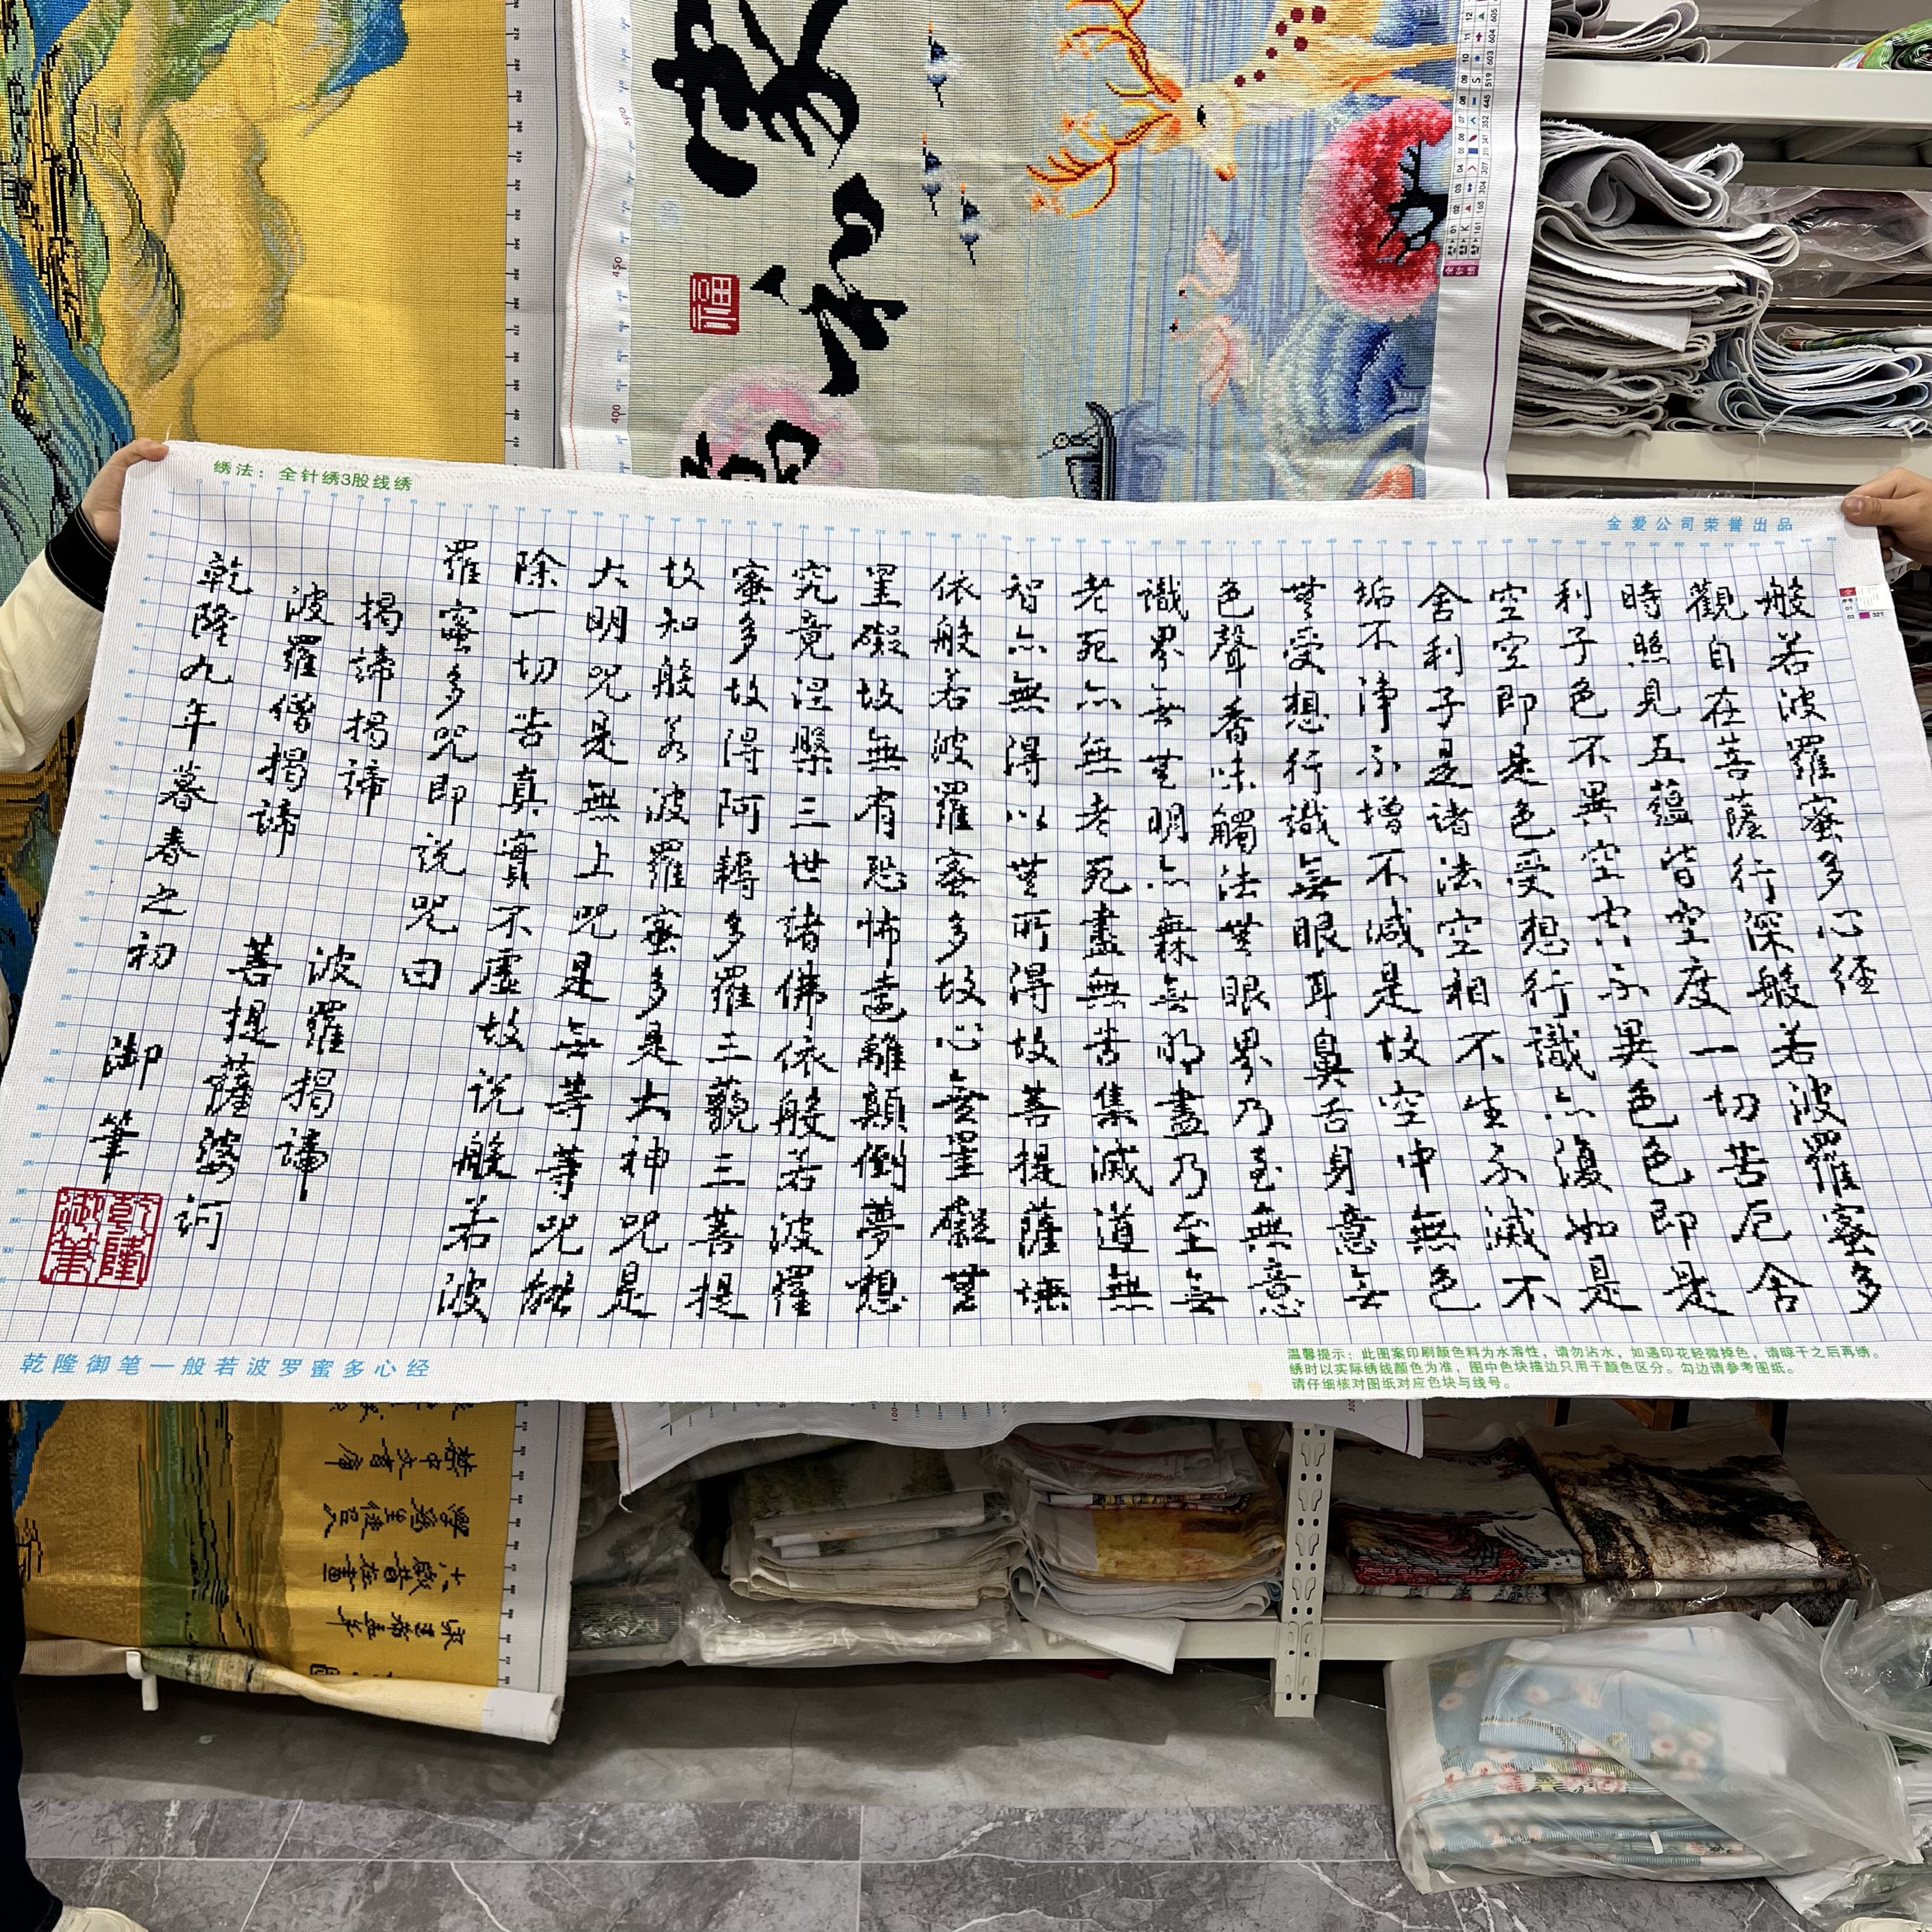 绣法：全针绣3股线绣
金爱公司荣誉出品
般若波羅蜜多心经
觀自在菩薩行深般若波羅蜜多
時照見五蘊皆空度一切苦厄舍
利子色不異空空不異色色即是
空空即是色受想行識亦復如是
舍利子是諸法空相不生不滅不
垢不淨不增不減是故空中無色
無受想行識無眼耳鼻舌身意無
色聲香味觸法無眼界乃至無意
識界無無明亦無無明盡乃至無
老死亦無老死盡無苦集滅道無
智亦無得以無所得故菩提薩埵
依般若波羅蜜多故心無罣礙無
罣礙故無有恐怖遠離顛倒夢想
究竟涅槃三世諸佛依般若波羅
蜜多故得阿耨多羅三藐三菩提
故知般若波羅蜜多是大神咒是
大明咒是無上咒是無等等咒能
除一切苦真實不虛故说般若波
羅蜜多咒即说咒曰
揭諦揭諦 波羅揭諦
波羅僧揭諦 菩提薩婆訶
乾隆九年暮春之初 御筆
乾隆御筆
乾隆御笔一般若波罗蜜多心经
温馨提示：此图案印刷颜色料为水溶性，请勿沾水，如遇印花轻微掉色，请晾干之后再绣。
绣时以实际绣线颜色为准，图中色块描边只用于颜色区分。勾边请参考图纸。
请仔细核对图纸对应色块与线号。
福